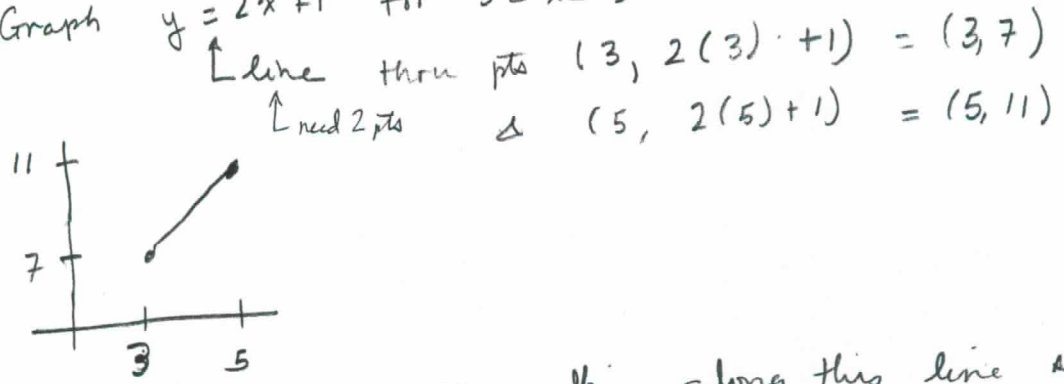 Graph y = 2x+1 for
line thru pts (3, 2(3) +1) = (3,7)
need 2 pts & (5, 2(5)+1) = (5, 11)
11
7
3 5
along this line